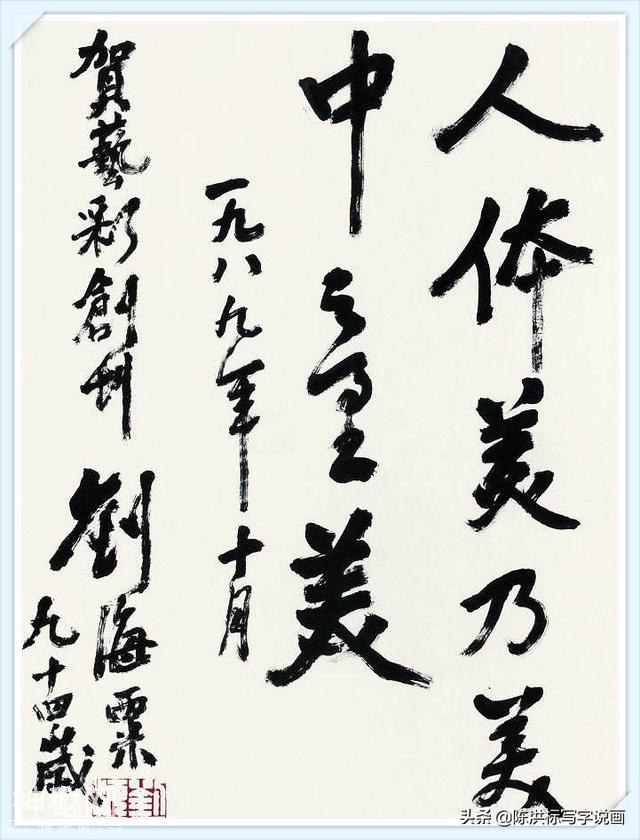 人体美乃美
中之至美
一九八九年十月
賀藝彩創刊 劉海粟
九十四歲
头条 @陈洪标写字说画